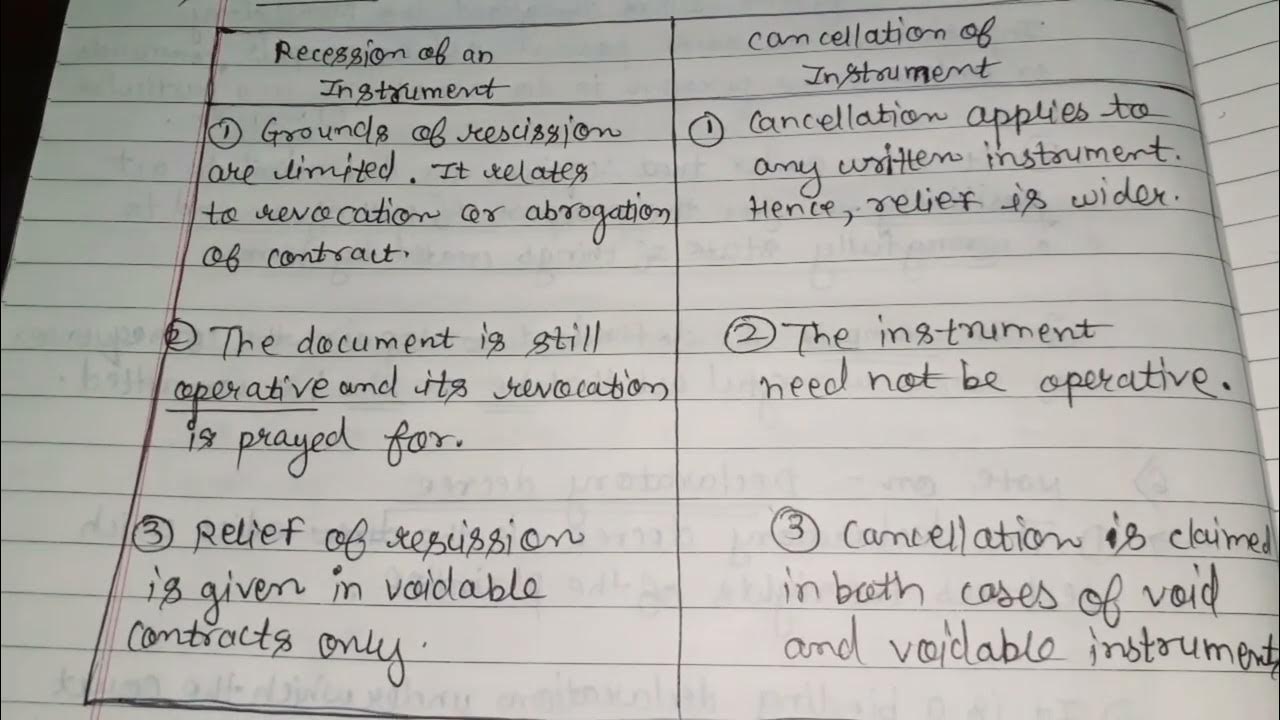 Recession of an
Instrument
① Grounds of rescission
are limited. It relates
to revocation or abrogation
of contract.
② The document is still
operative and its revocation
is prayed for.
③ Relief of rescission
is given in voidable
contracts only.
cancellation of
Instrument
① Cancellation applies to
any written instrument.
Hence, relief is wider.
② The instrument
need not be operative.
③ Cancellation is claimed
in both cases of void
and voidable instrument